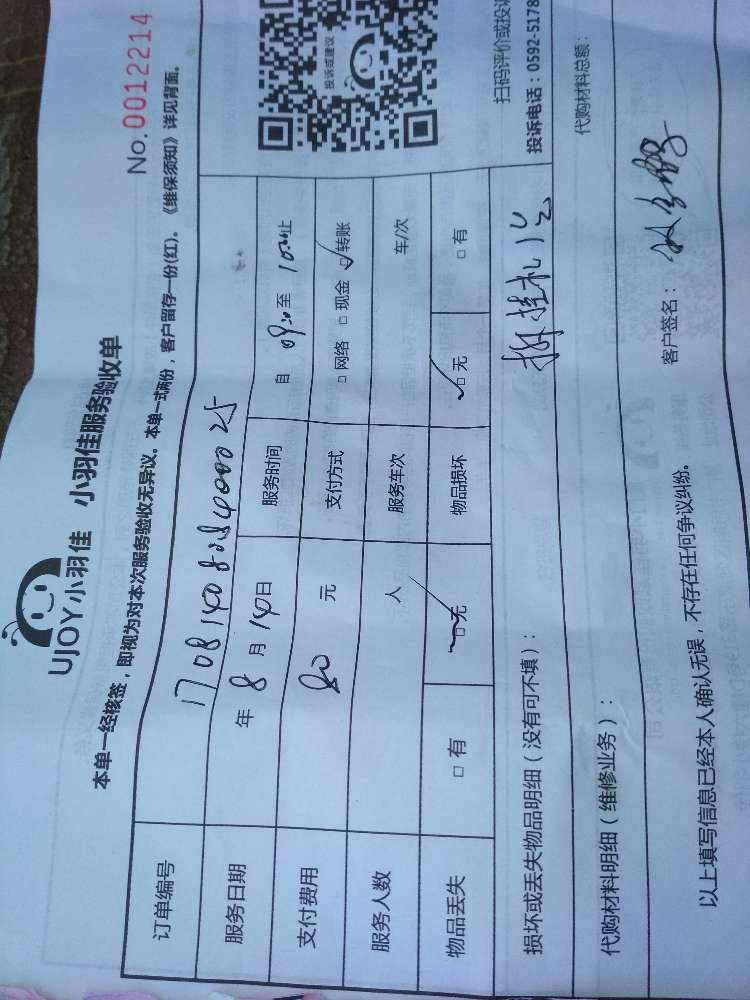 UJOY小羽佳 小羽佳服务验收单
No.0012214
本单一经核签，即视为对本次服务验收无异议。本单一式两份，客户留存一份(红)。《维保须知》详见背面。
订单编号
服务日期 年 8 月 14 日 服务时间 自 至 止
支付费用 80 元 支付方式 □ 网络 □ 现金 ☑ 转账
服务人数 人 服务车次 车/次
物品丢失 □ 有 ☑ 无 物品损坏 ☑ 无 □ 有
投诉或建议
扫码评价或投诉
投诉电话：0592-5178
损坏或丢失物品明细（没有可不填）： 拆挂机1台
代购材料明细（维修业务）： 代购材料总额：
以上填写信息已经本人确认无误，不存在任何争议纠纷。 客户签名：